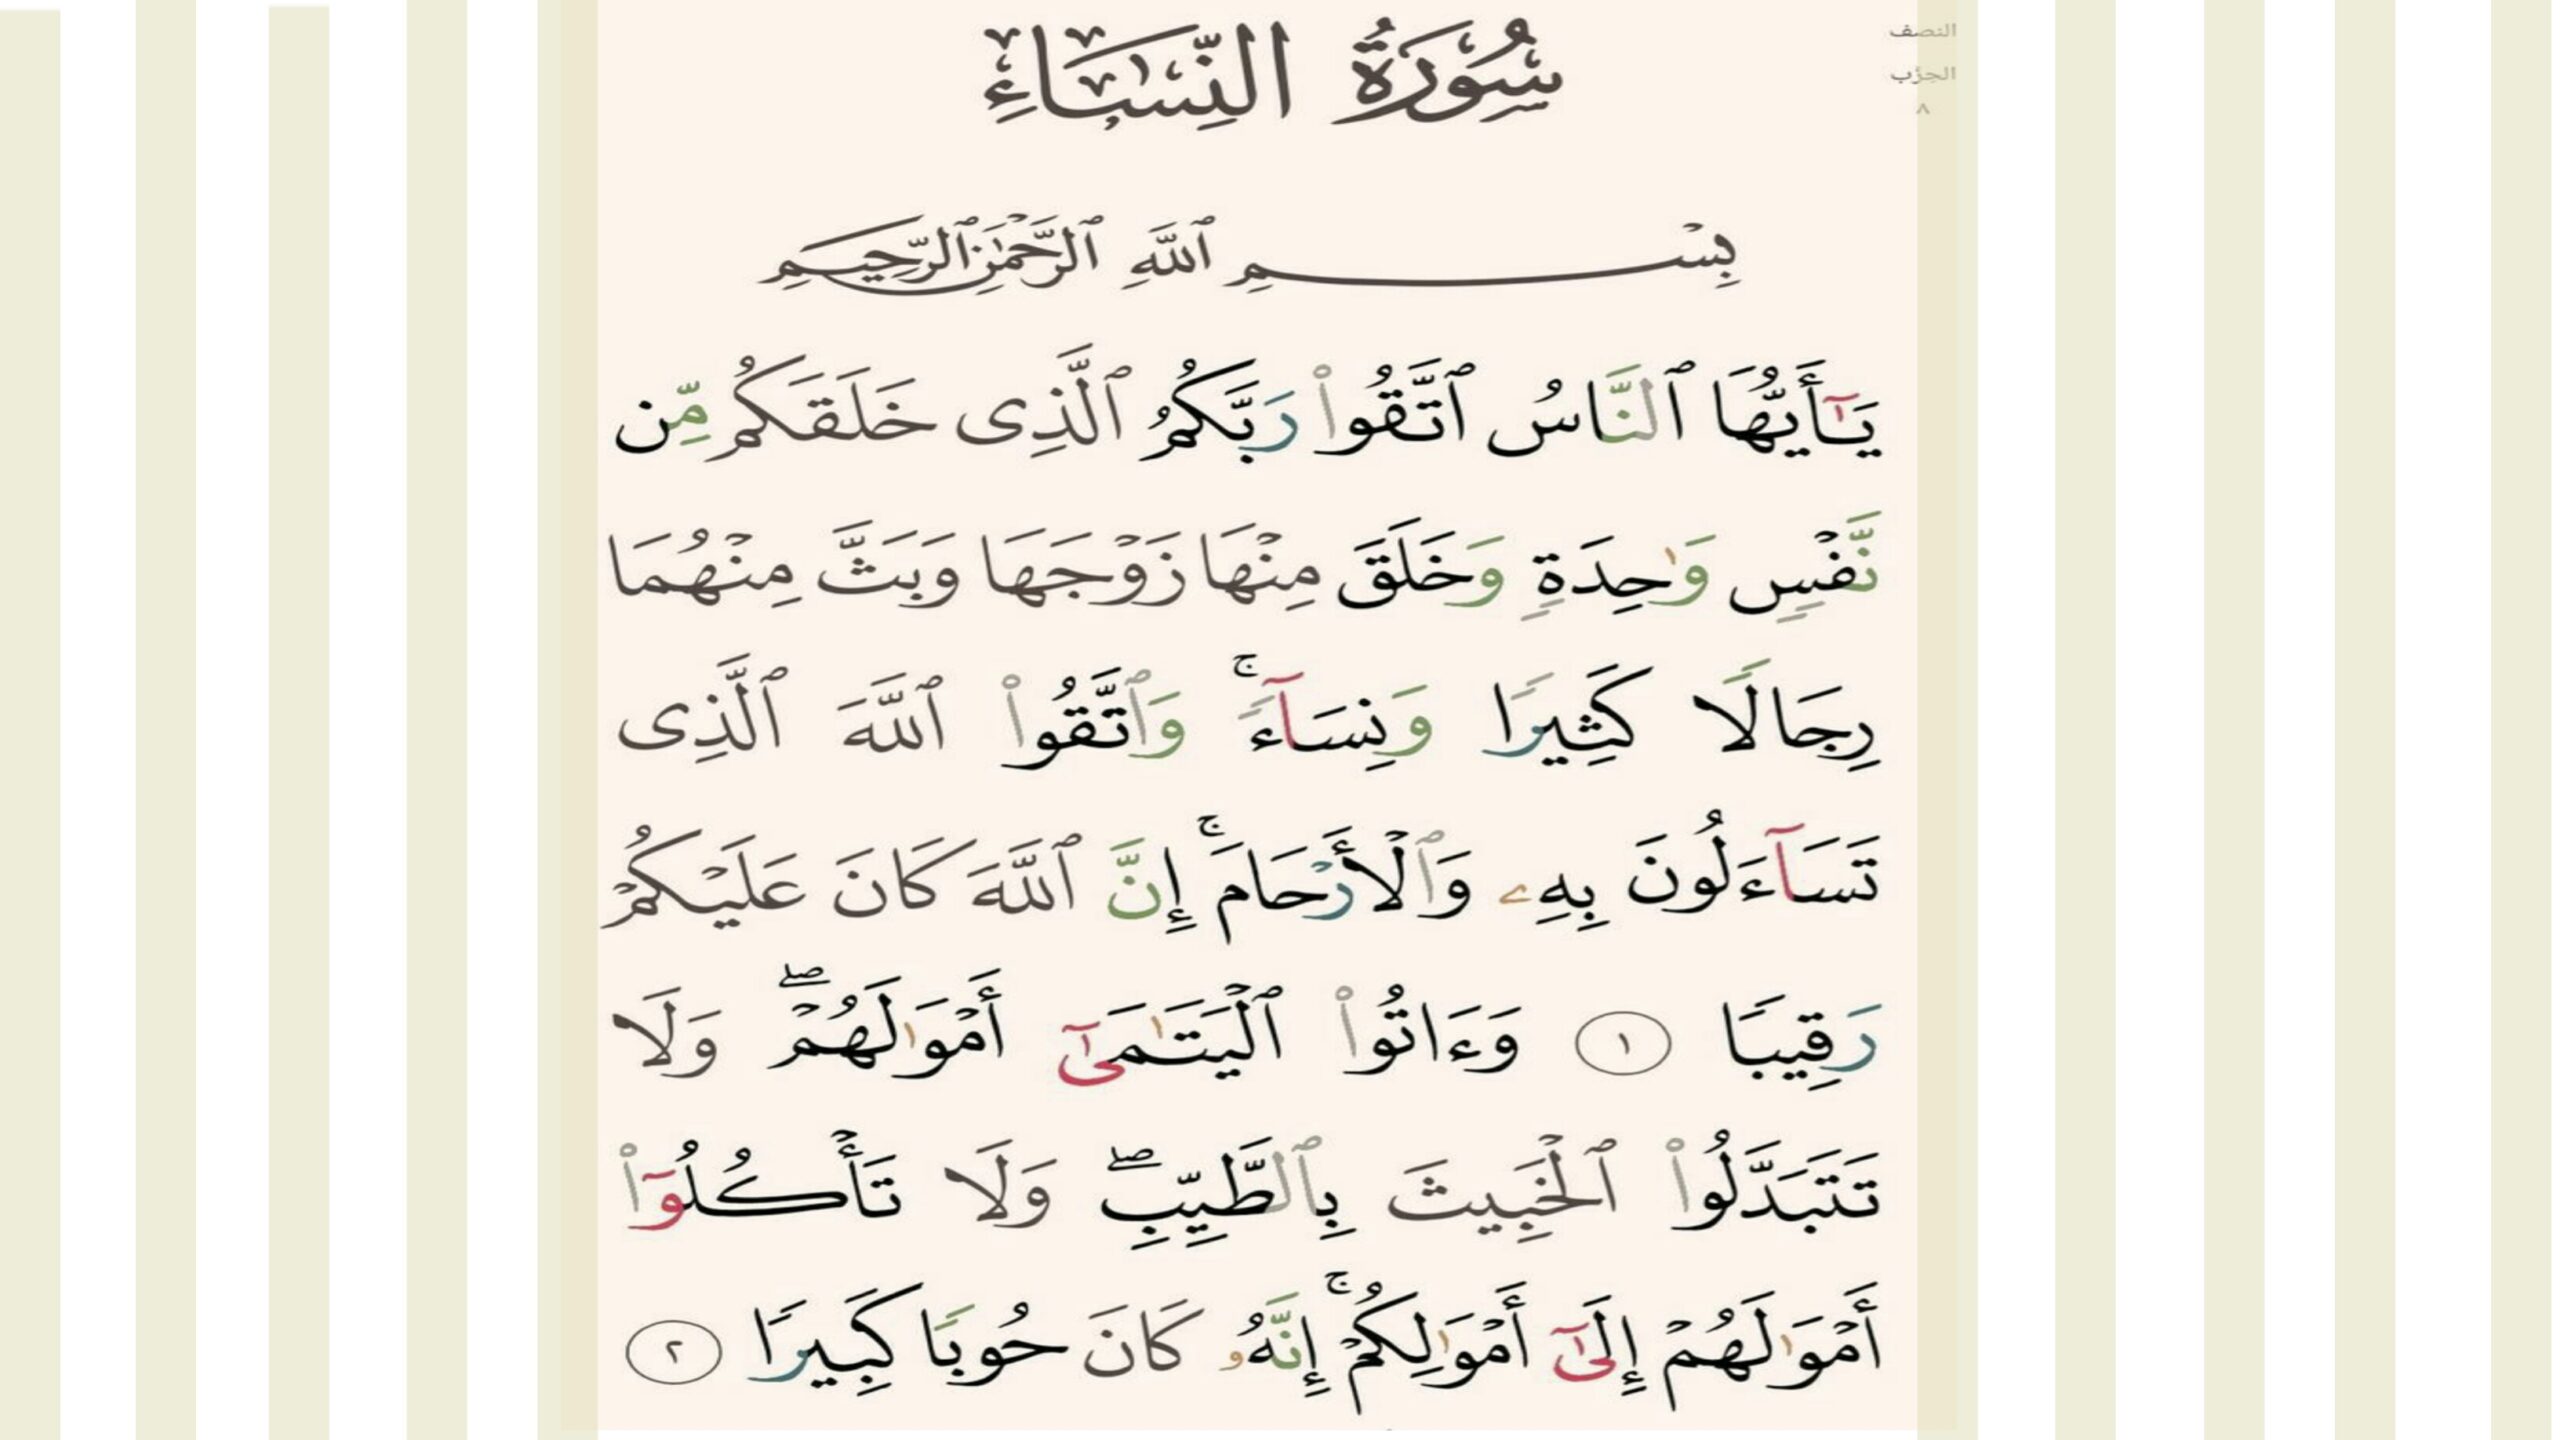 النصف
الحزب
٨
سُورَةُ النِّسَاءِ
بِسْمِ ٱللَّهِ ٱلرَّحْمَٰنِ ٱلرَّحِيمِ
يَـٰٓأَيُّهَا ٱلنَّاسُ ٱتَّقُوا۟ رَبَّكُمُ ٱلَّذِى خَلَقَكُم مِّن
نَّفْسٍ وَٰحِدَةٍ وَخَلَقَ مِنْهَا زَوْجَهَا وَبَثَّ مِنْهُمَا
رِجَالًا كَثِيرًا وَنِسَآءً ۚ وَٱتَّقُوا۟ ٱللَّهَ ٱلَّذِى
تَسَآءَلُونَ بِهِۦ وَٱلْأَرْحَامَ ۚ إِنَّ ٱللَّهَ كَانَ عَلَيْكُمْ
رَقِيبًا ١ وَءَاتُوا۟ ٱلْيَتَـٰمَىٰٓ أَمْوَٰلَهُمْ ۖ وَلَا
تَتَبَدَّلُوا۟ ٱلْخَبِيثَ بِٱلطَّيِّبِ ۖ وَلَا تَأْكُلُوٓا۟
أَمْوَٰلَهُمْ إِلَىٰٓ أَمْوَٰلِكُمْ ۚ إِنَّهُۥ كَانَ حُوبًا كَبِيرًا ٢